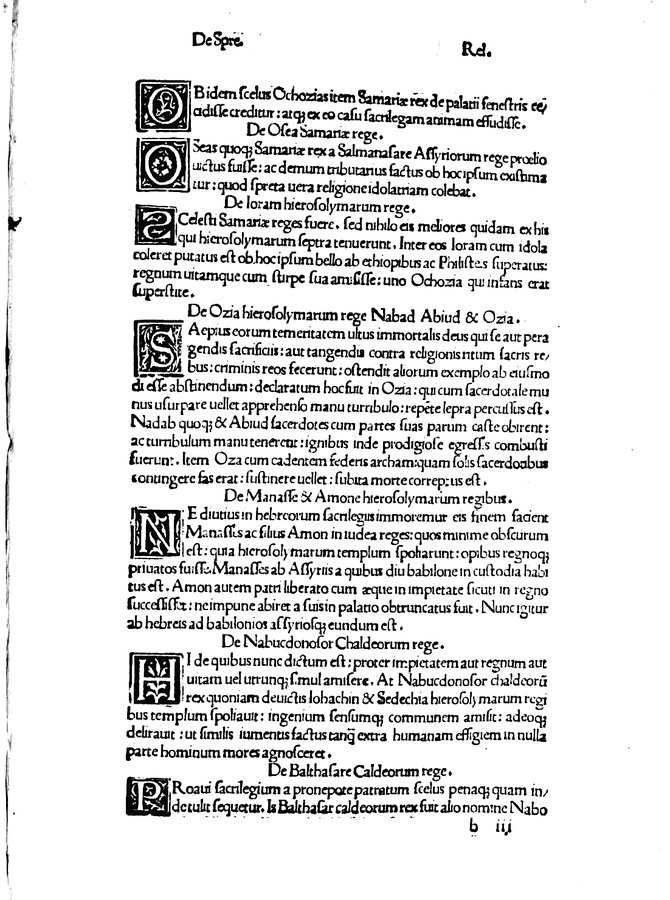 De Spre.
Rel.
OB idem scelus Ochozias item Samariæ rex de palatii fenestris ce/
cidisse creditur: atq; ex eo casu sacrilegam animam effudisse.
De Osea Samariæ rege.
OSeas quoq; Samariæ rex a Salmanasare Assyriorum rege prœlio
uictus fuisse: ac demum tributarius factus ob hoc ipsum existima
tur: quod spreta uera religione idolatriam colebat.
De Ioram hierosolymarum rege.
SCelesti Samariæ reges fuere. sed nihilo eis meliores quidam ex his
qui hierosolymarum septra tenuerunt. Inter eos Ioram cum idola
coleret putatus est ob hoc ipsum bello ab ethiopibus ac Philisteis superatus:
regnum uitamque cum stirpe sua amisisse: uno Ochozia qui infans erat
superstite.
De Ozia hierosolymarum rege Nabad Abiud & Ozia.
SAepius eorum temeritatem ultus immortalis deus qui se aut pera
gendis sacrificiis: aut tangendis contra religionis ritum sacris re/
bus: criminis reos fecerunt: ostendit aliorum exemplo ab eiusmo
di esse abstinendum: declaratum hoc fuit in Ozia: qui cum sacerdotale mu
nus usurpare uellet apprehenso manu turribulo: repẽte lepra percussus est.
Nadab quoq; & Abiud sacerdotes cum partes suas parum caste obirent:
ac turribulum manu tenerent: ignibus inde prodigiose egressis combusti
fuerunt. Item Oza cum cadentem federis archam: quam solis sacerdotibus
contingere fas erat: sustinere uellet: subita morte correptus est.
De Manasse & Amone hierosolymarum regibus.
NE diutius in hebreorum sacrilegiis immoremur eis finem facient
Manasses ac filius Amon in iudea reges: quos minime obscurum
est: quia hierosolymarum templum spoliarunt: opibus regnoq;
priuatos fuisse. Manasses ab Assyriis a quibus diu babilone in custodia habi
tus est. Amon autem patri liberato cum æque in impietate sicuti in regno
successisset: ne impune abiret a suis in palatio obtruncatus fuit. Nunc igitur
ab hebreis ad babilonios assyriosq; eundum est.
De Nabucdonosor Chaldeorum rege.
HI de quibus nunc dictum est: propter impietatem aut regnum aut
uitam uel utrunq; simul amisere. At Nabucdonosor chaldeorũ
rex quoniam deuictis Iohachin & Sedechia hierosolymarum regi
bus templum spoliauit: ingenium sensumq; communem amisit: adeoq;
delirauit: ut similis iumentis factus tanq̃ extra humanam effigiem in nulla
parte hominum mores agnosceret.
De Balthasare Caldeorum rege.
PRoaui sacrilegium a pronepote patratum scelus penaq; quam in/
de tulit sequetur. Is Balthasar caldeorum rex fuit alio nomine Nabo
b iii